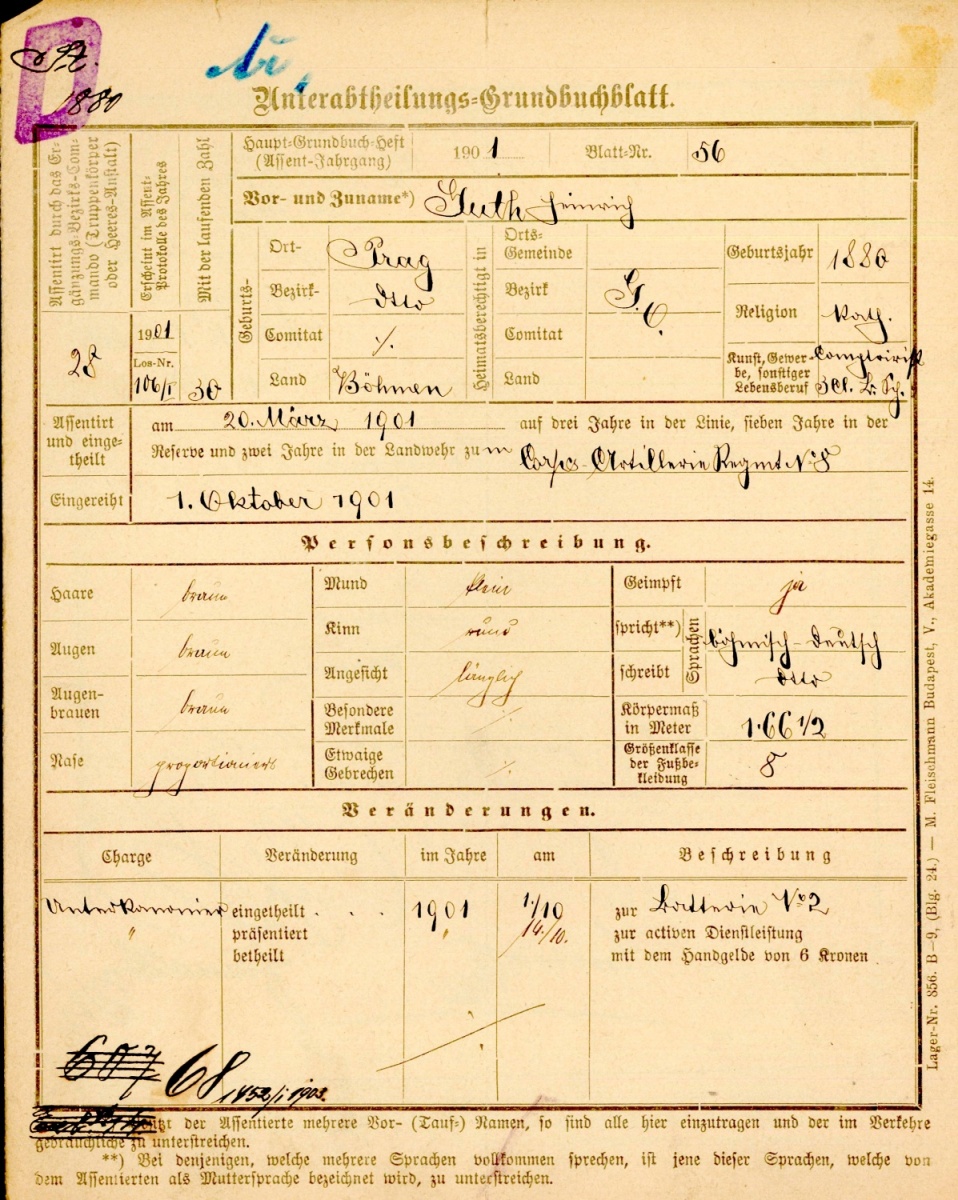 St.
1880
Unterabtheilungs-Grundbuchblatt.
Assentirt durch das Ergänzungs-Bezirks-Commando (Truppenkörper oder Heeres-Anstalt)
28
Erscheint im Assent-Protokolle des Jahres
1901
Los-Nr.
106/I
Mit der laufenden Zahl
30
Haupt-Grundbuch-Heft
(Assent-Jahrgang)
1901
Blatt-Nr. 56
Vor- und Zuname*) Guth Heinrich
Geburts-
Ort- Prag
Bezirk- dtto
Comitat ./.
Land Böhmen
Heimatsberechtigt in
Orts-Gemeinde
Bezirk
Comitat
Land
G. O.
Geburtsjahr 1880
Religion kath.
Kunst, Gewerbe, sonstiger Lebensberuf Comptoirist
Assentirt und eingetheilt
am 20. März 1901 auf drei Jahre in der Linie, sieben Jahre in der
Reserve und zwei Jahre in der Landwehr zum Corps-Artillerie Regmt No 8
Eingereiht 1. Oktober 1901
Personsbeschreibung.
Haare braun
Augen braun
Augenbrauen braun
Nase proportionirt
Mund klein
Kinn rund
Angesicht länglich
Besondere Merkmale ./.
Etwaige Gebrechen ./.
Geimpft ja
Sprachen
spricht**) böhmisch-deutsch
schreibt dtto
Körpermaß in Meter 1·66 1/2
Größenklasse der Fußbekleidung 8
Veränderungen.
Charge Veränderung im Jahre am Beschreibung
Unterkanonier eingetheilt . . . 1901 1/10 zur Batterie No 2
" präsentirt " 14./10. zur activen Dienstleistung
betheilt mit dem Handgelde von 6 Kronen
607 68 1452/I 1903.
besitzt der Assentierte mehrere Vor- (Tauf-) Namen, so sind alle hier einzutragen und der im Verkehre
gebräuchliche zu unterstreichen.
**) Bei denjenigen, welche mehrere Sprachen vollkommen sprechen, ist jene dieser Sprachen, welche von
dem Assentierten als Muttersprache bezeichnet wird, zu unterstreichen.
Lager-Nr. 856. B—9, (Blg. 24.) — M. Fleischmann Budapest, V., Akademiegasse 14.